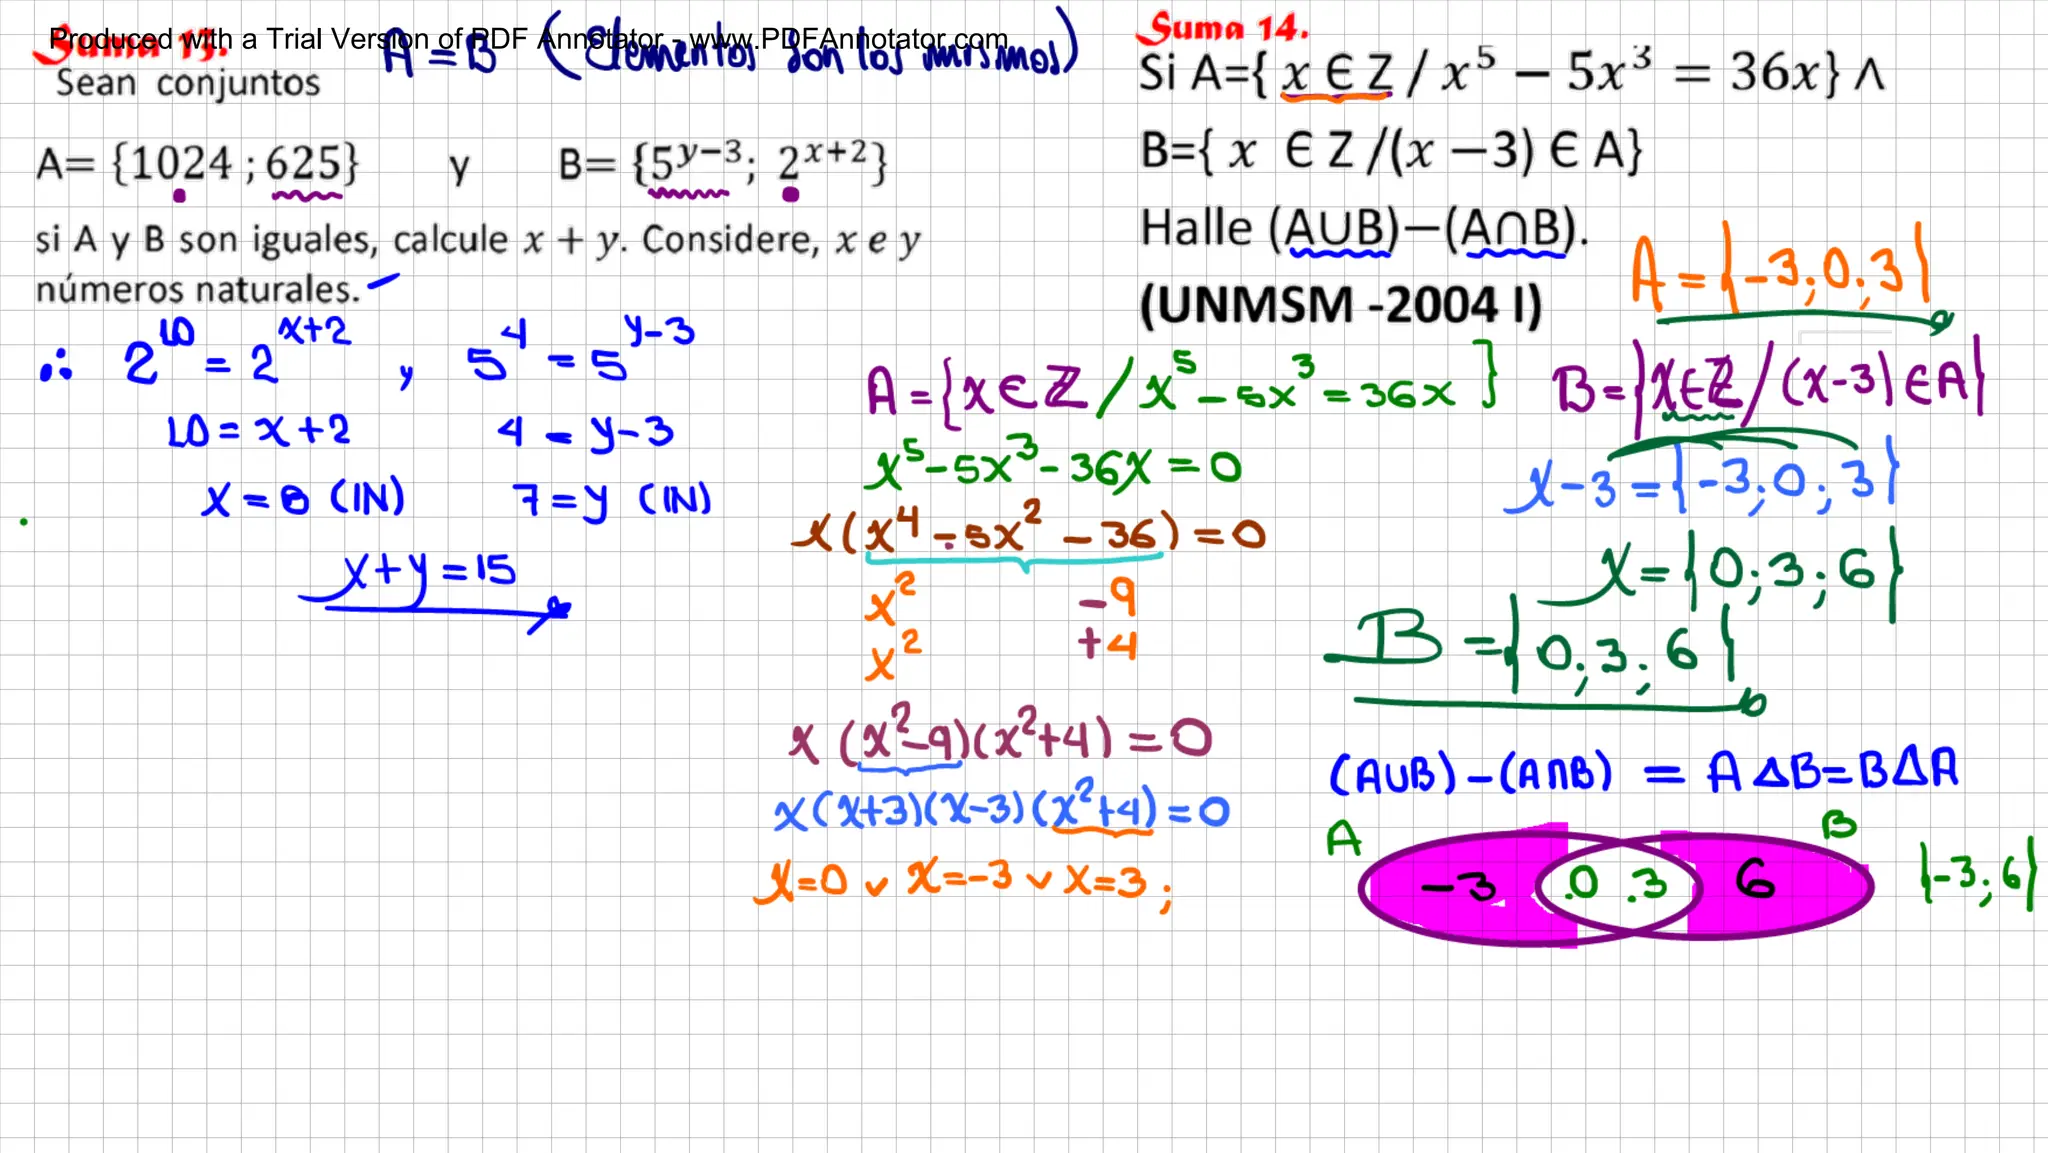 Suma 13.
Produced with a Trial Version of PDF Annotator - www.PDFAnnotator.com
A = B (Elementos son los mismos)
Sean conjuntos
A= {1024 ; 625} y B= {5^{y−3}; 2^{x+2}}
si A y B son iguales, calcule x + y. Considere, x e y
números naturales.
∴ 2^{10} = 2^{x+2} , 5^4 = 5^{y-3}
10 = x+2 4 = y-3
x = 8 (IN) 7 = y (IN)
x+y = 15
Suma 14.
Si A={ x ∈ Z / x^5 − 5x^3 = 36x} ∧
B={ x ∈ Z /(x −3) ∈ A}
Halle (A∪B)−(A∩B).
(UNMSM -2004 I)
A = {x ∈ Z / x^5 - 5x^3 = 36x}
x^5 - 5x^3 - 36x = 0
x(x^4 - 5x^2 - 36) = 0
x^2 -9
x^2 +4
x (x^2-9)(x^2+4) = 0
x(x+3)(x-3)(x^2+4) = 0
x=0 ∨ x=-3 ∨ x=3 ;
A = {-3; 0; 3}
B = {x ∈ Z / (x-3) ∈ A}
x-3 = {-3; 0; 3}
x = {0; 3; 6}
B = {0; 3; 6}
(A∪B) - (A∩B) = A Δ B = B Δ A
A B
-3 .0 .3 6 {-3; 6}